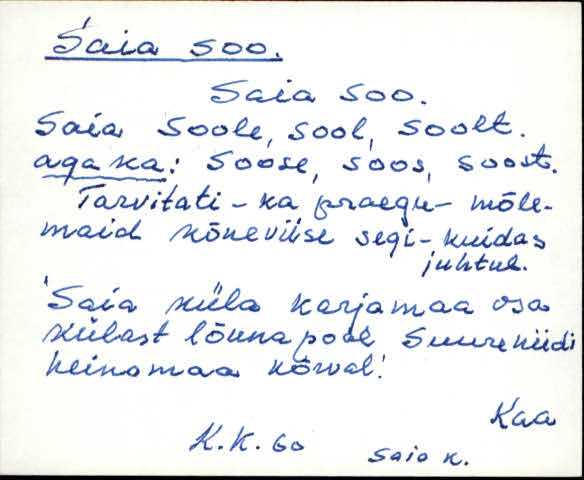 Saia soo.
Saia soo.
Saia soole, sool, soolt.
aga ka: soose, soos, soost.
Tarvitati - ka praegu - mõle-
maid kõneviise segi - kuidas
juhtub.
Saia küla karjamaa osa
külast lõuna pool Suureniidi
heinamaa kõrval.
Kaa
K.K. 60
Saia k.